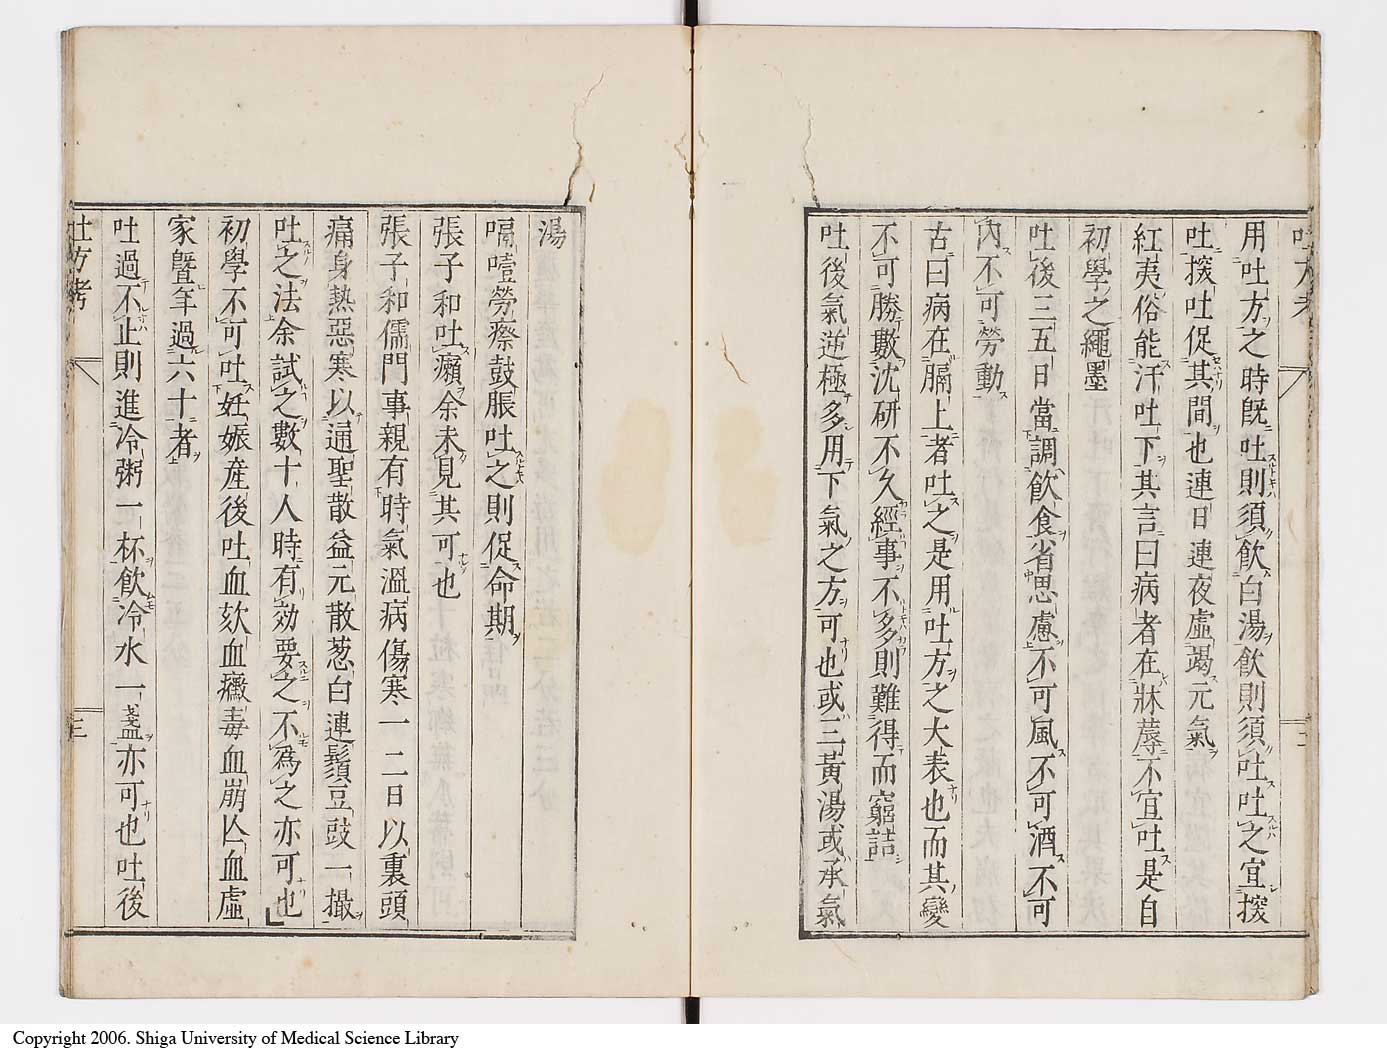 用吐方之時既吐則須飲白湯飲則須吐吐之宜接
吐接吐促其間也連日連夜虛竭元氣
紅夷俗能汗吐下其言曰病者在牀蓐不宜吐是自
初學之繩墨
吐後三五日當調飲食省思慮不可風不可酒不可
內不可勞動
古曰病在膈上者吐之是用吐方之大表也而其變
不可勝數沈研不久經事不多則難得而窮詰
吐後氣逆極多用下氣之方可也或三黃湯或承氣
湯
嗝噎勞瘵鼓脹吐之則促命期
張子和吐癩余未見其可也
張子和儒門事親有時氣溫病傷寒一二日以裏頭
痛身熱惡寒以通聖散益元散葱白連鬚豆豉一撮
吐之法余試之數十人時有効要之不爲之亦可也
初學不可吐妊娠産後吐血欬血癥毒血崩亾血虛
家曁年過六十者
吐過不止則進冷粥一杯飲冷水一盞亦可也吐後
吐方考
三
Copyright 2006. Shiga University of Medical Science Library